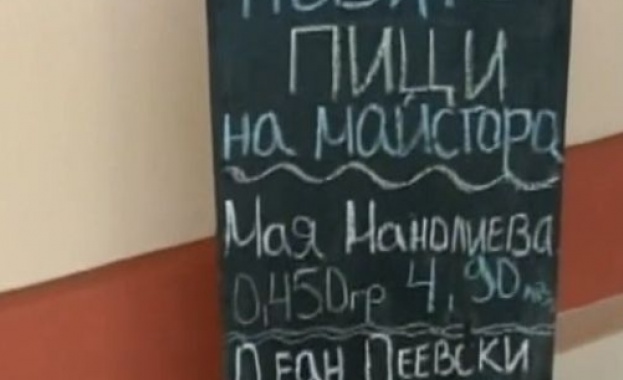 ПИЦИ
на майстора
Мая Манолиева
0,450гр 4,90лв.
Деан Пеевски